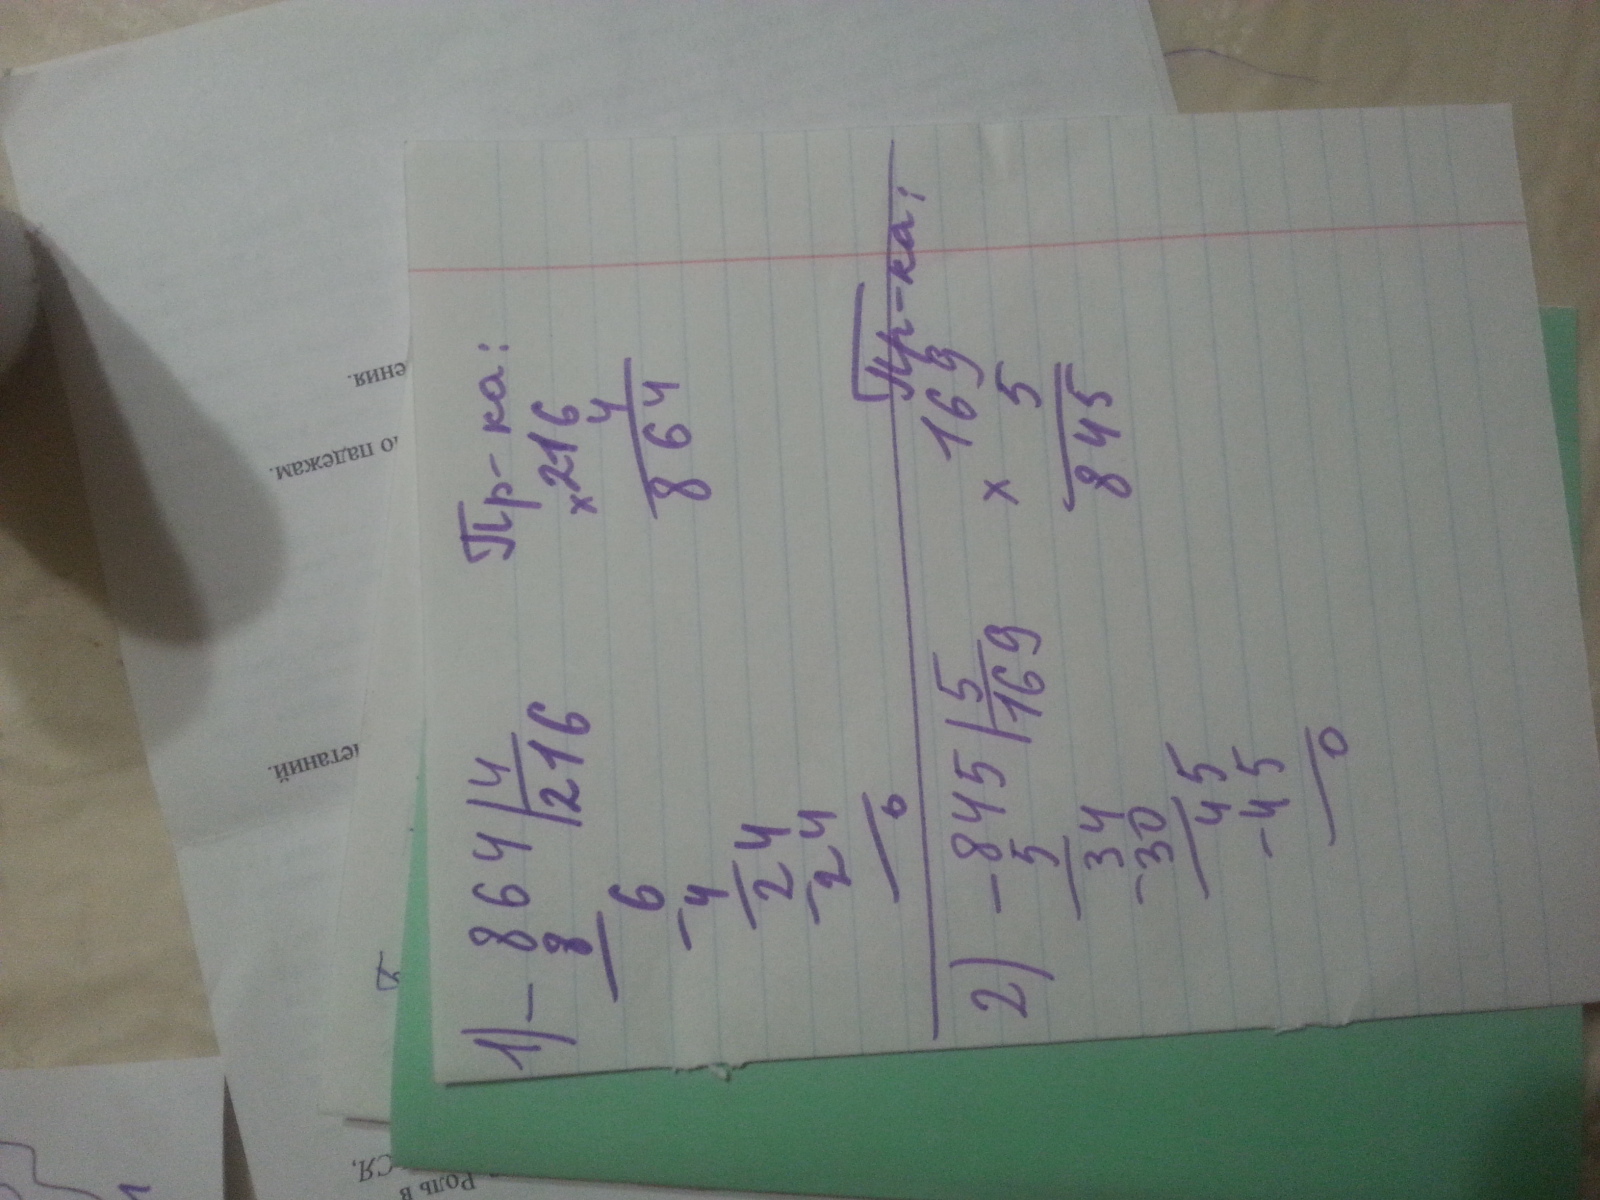 1) - 864 | 4
8 216
6
- 4
24
- 24
0
Пр-ка:
× 216
4
864
2) - 845 | 5
5 169
34
- 30
45
- 45
0
Пр-ка:
169
× 5
845
ения.
о падежам.
етаний.
Роль в
СЯ,